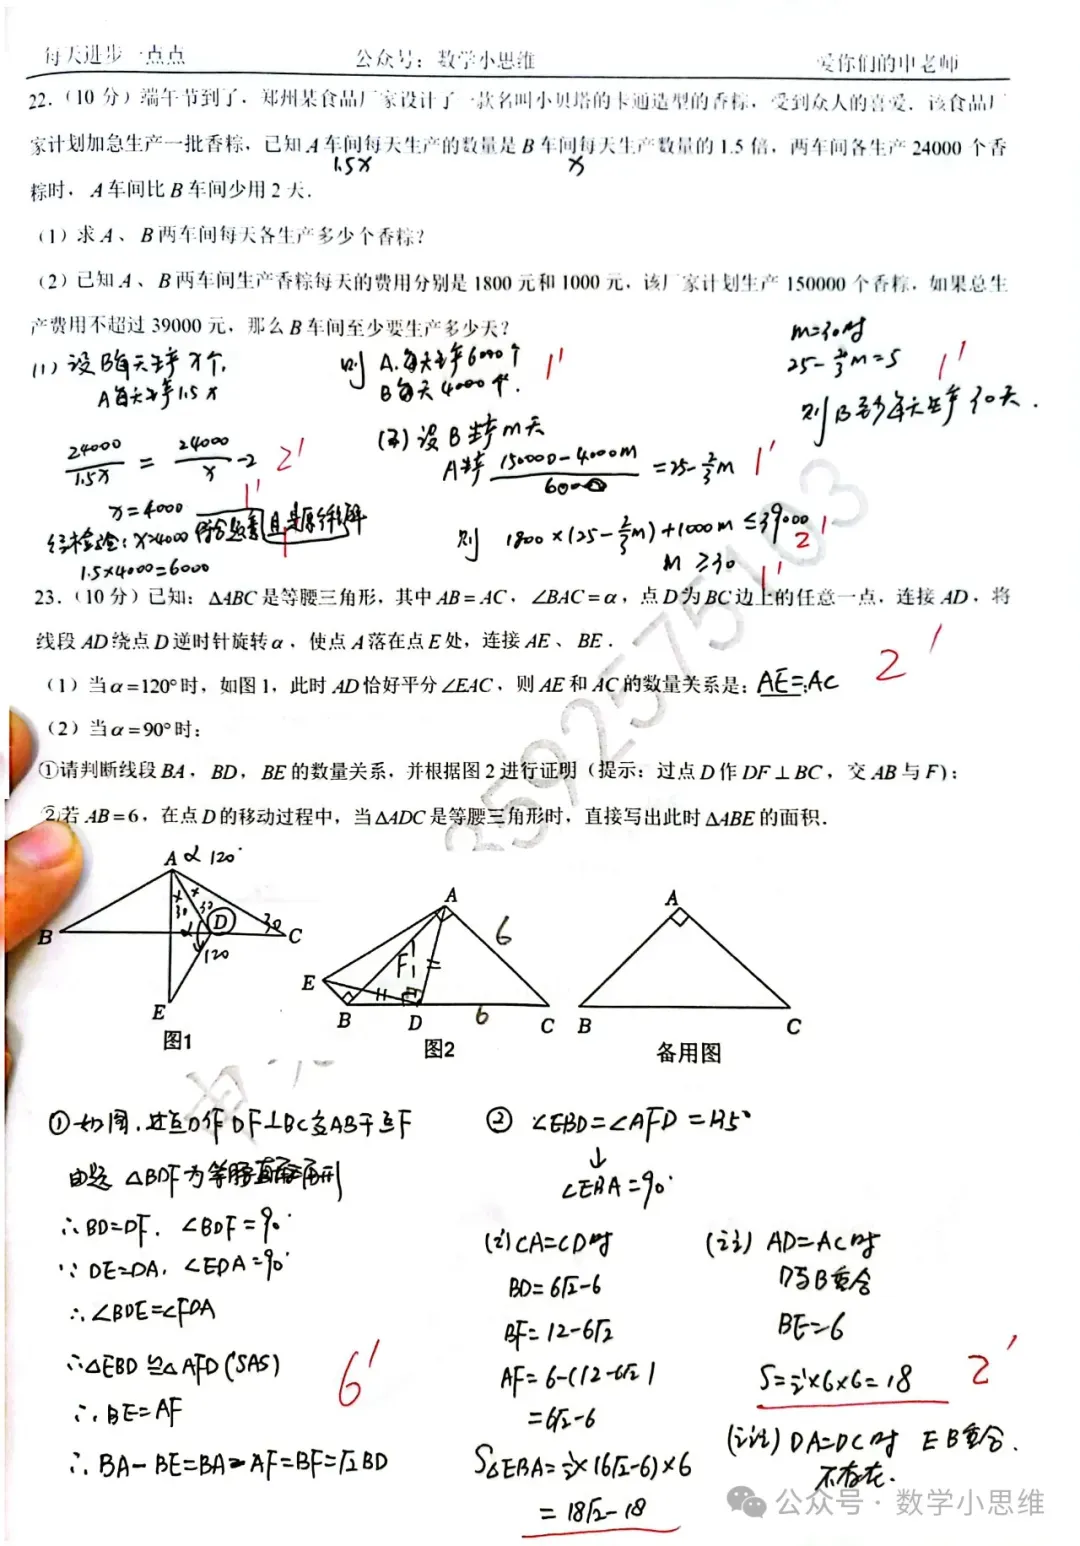 每天进步一点点 公众号：数学小思维 爱你们的申老师
22.（10 分）端午节到了，郑州某食品厂家设计了一款名叫小贝塔的卡通造型的香粽，受到众人的喜爱．该食品厂
家计划加急生产一批香粽，已知 A 车间每天生产的数量是 B 车间每天生产数量的 1.5 倍，两车间各生产 24000 个香
1.5x x
粽时，A 车间比 B 车间少用 2 天．
（1）求 A、B 两车间每天各生产多少个香粽？
（2）已知 A、B 两车间生产香粽每天的费用分别是 1800 元和 1000 元，该厂家计划生产 150000 个香粽，如果总生
产费用不超过 39000 元，那么 B 车间至少要生产多少天？
(1) 设B每天生产 x个,
A每天生产1.5x
24000/1.5x = 24000/x -2 2'
x=4000 1'
经检验: x=4000 符合题意且是原方程解 1'
1.5×4000=6000
则 A每天生产6000个 1'
B每天4000个.
(2) 设B生产m天
A生产 150000-4000m/6000 =25-2/3m 1'
则 1800×(25-2/3m)+1000m≤39000 2'
m≥30 1'
m=30时
25-2/3m=5 1'
则B至少每天生产30天.
23.（10 分）已知：△ABC 是等腰三角形，其中 AB=AC，∠BAC=α，点 D 为 BC 边上的任意一点，连接 AD，将
线段 AD 绕点 D 逆时针旋转α，使点 A 落在点 E 处，连接 AE、BE．
（1）当α=120°时，如图 1，此时 AD 恰好平分∠EAC，则 AE 和 AC 的数量关系是：AE=AC 2'
（2）当α=90°时：
①请判断线段 BA，BD，BE 的数量关系，并根据图 2 进行证明（提示：过点 D 作 DF⊥BC，交 AB 与 F)；
②若 AB=6，在点 D 的移动过程中，当△ADC 是等腰三角形时，直接写出此时△ABE 的面积．
A α 120°
30 30
B α D 30 C
120
E
图1
A
6
E F
B D 6 C
图2
A
B C
备用图
① 如图,过点D作DF⊥BC交AB于点F
由题 △BDF为等腰直角三角形
∴BD=DF, ∠BDF=90°
∵DE=DA, ∠EDA=90°
∴∠BDE=∠FDA
∴△EBD≌△AFD(SAS) 6'
∴BE=AF
∴BA-BE=BA-AF=BF=√2BD
② ∠EBD=∠AFD=135°
↓
∠EBA=90°
(i) CA=CD时
BD=6√2-6
BF=12-6√2
AF=6-(12-6√2)
=6√2-6
S△EBA=1/2×(6√2-6)×6
=18√2-18
(ii) AD=AC时
D与B重合
BE=6
S=1/2×6×6=18 2'
(iii) DA=DC时 E B重合.
不存在.
3592575103
公众号·数学小思维